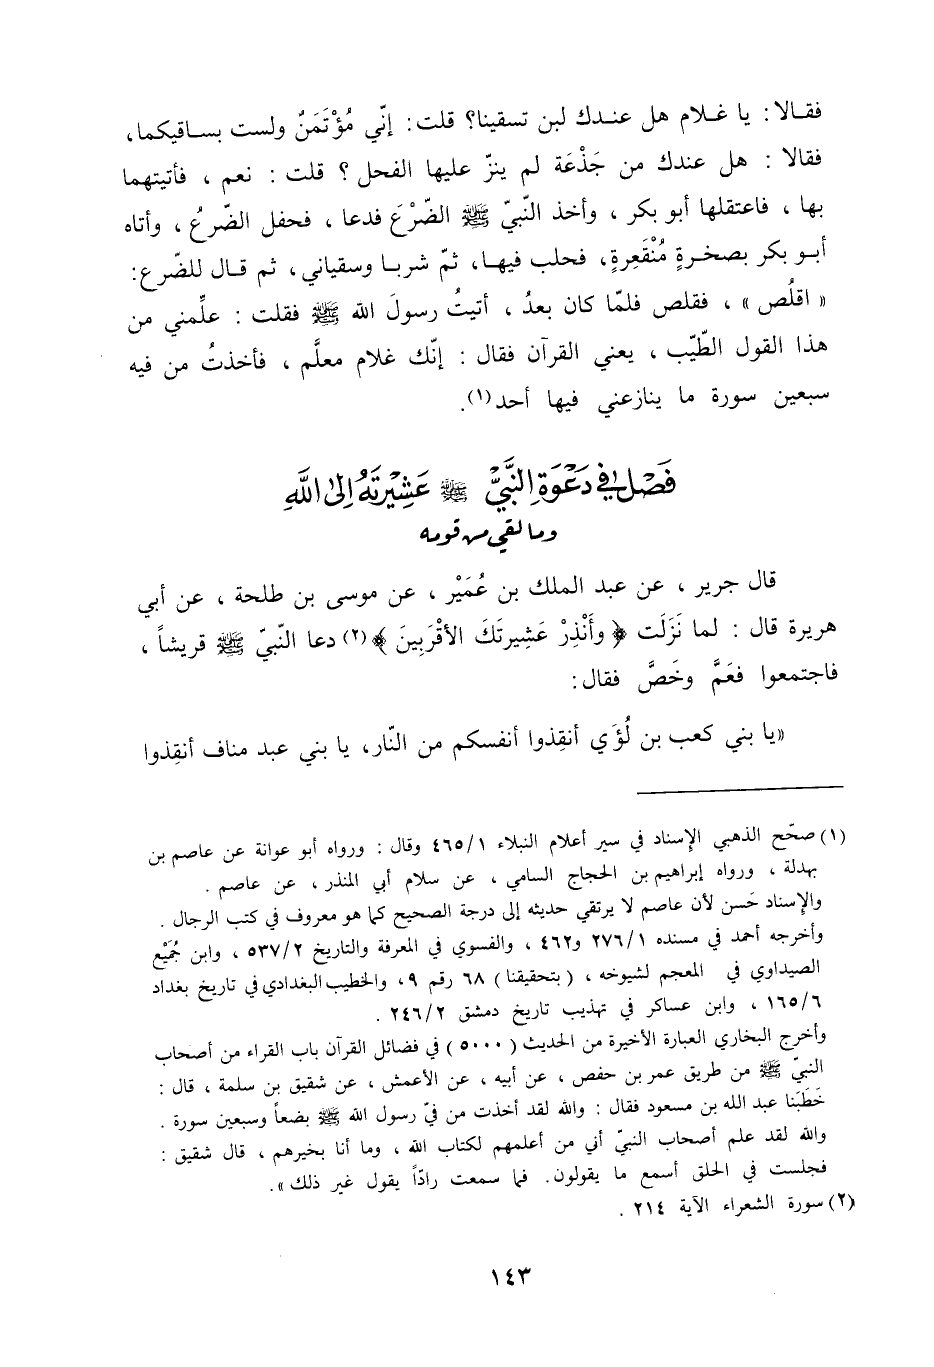 فقـالا: يا غـلام هل عنـدك لبن تسقينا؟ قلت: إنّي مُؤْتَمَنٌ ولست بسـاقيكما،
فقالا : هل عندك من جَذْعَة لم ينزّ عليها الفحل ؟ قلت : نعم ، فأتيتهما
بها ، فاعتقلها أبو بكر ، وأخذ النّبيّ ﷺ الضّرْعَ فدعا ، فحفل الضّرعُ ، وأتاه
أبـو بكر بصخـرةٍ مُنْقَعِرةٍ، فحلب فيهـا، ثمّ شربـا وسقياني، ثم قـال للضّرع:
« اقلُص » ، فقلص فلمّا كان بعدُ ، أتيتُ رسولَ الله ﷺ فقلت : علِّمني من
هذا القول الطّيّب ، يعني القرآن فقال : إنّك غلام معلَّم ، فأخذتُ من فيه
سبعين سورة ما ينازعني فيها أحد(١).
فَصْل في دَعْوَةِ النَّبيِّ ﷺ عَشِيرتَهُ إلى اللَّهِ
وما لقي من قومه
قال جرير ، عن عبد الملك بن عُمَيْر ، عن موسى بن طلحة ، عن أبي
هريرة قال : لما نَزَلَت ﴿ وأَنْذِرْ عَشِيرتَكَ الأقْرَبِينَ ﴾(٢) دعا النّبيّ ﷺ قريشاً ،
فاجتمعوا فعَمَّ وخَصَّ فقال:
«يا بني كعب بن لُؤَي أنقِذوا أنفسكم من النّار، يا بني عبد مناف أنقِذوا
(١) صحّح الذهبي الإسناد في سير أعلام النبلاء ٤٦٥/١ وقال : ورواه أبو عوانة عن عاصم بن
بهدلة ، ورواه إبراهيم بن الحجاج السامي ، عن سلام أبي المنذر ، عن عاصم .
والإسناد حَسن لأن عاصم لا يرتقي حديثه إلى درجة الصحيح كما هو معروف في كتب الرجال .
وأخرجه أحمد في مسنده ٢٧٦/١ و٤٦٢ ، والفسوي في المعرفة والتاريخ ٥٣٧/٢ ، وابن جُمَيْع
الصيداوي في المعجم لشيوخه ، (بتحقيقنا) ٦٨ رقم ٩، والخطيب البغدادي في تاريخ بغداد
١٦٥/٦ ، وابن عساكر في تهذيب تاريخ دمشق ٢٤٦/٢ .
وأخرج البخاري العبارة الأخيرة من الحديث ( ٥٠٠٠ ) في فضائل القرآن باب القراء من أصحاب
النبيّ ﷺ من طريق عمر بن حفص ، عن أبيه ، عن الأعمش ، عن شقيق بن سلمة ، قال :
خَطَبَنا عبد الله بن مسعود فقال : والله لقد أخذت من فيّ رسول الله ﷺ بضعاً وسبعين سورة .
والله لقد علم أصحاب النبيّ أني من أعلمهم لكتاب الله ، وما أنا بخيرهم ، قال شقيق :
فجلست في الحلق أسمع ما يقولون. فما سمعت رادّاً يقول غير ذلك».
(٢) سورة الشعراء الآية ٢١٤ .
١٤٣